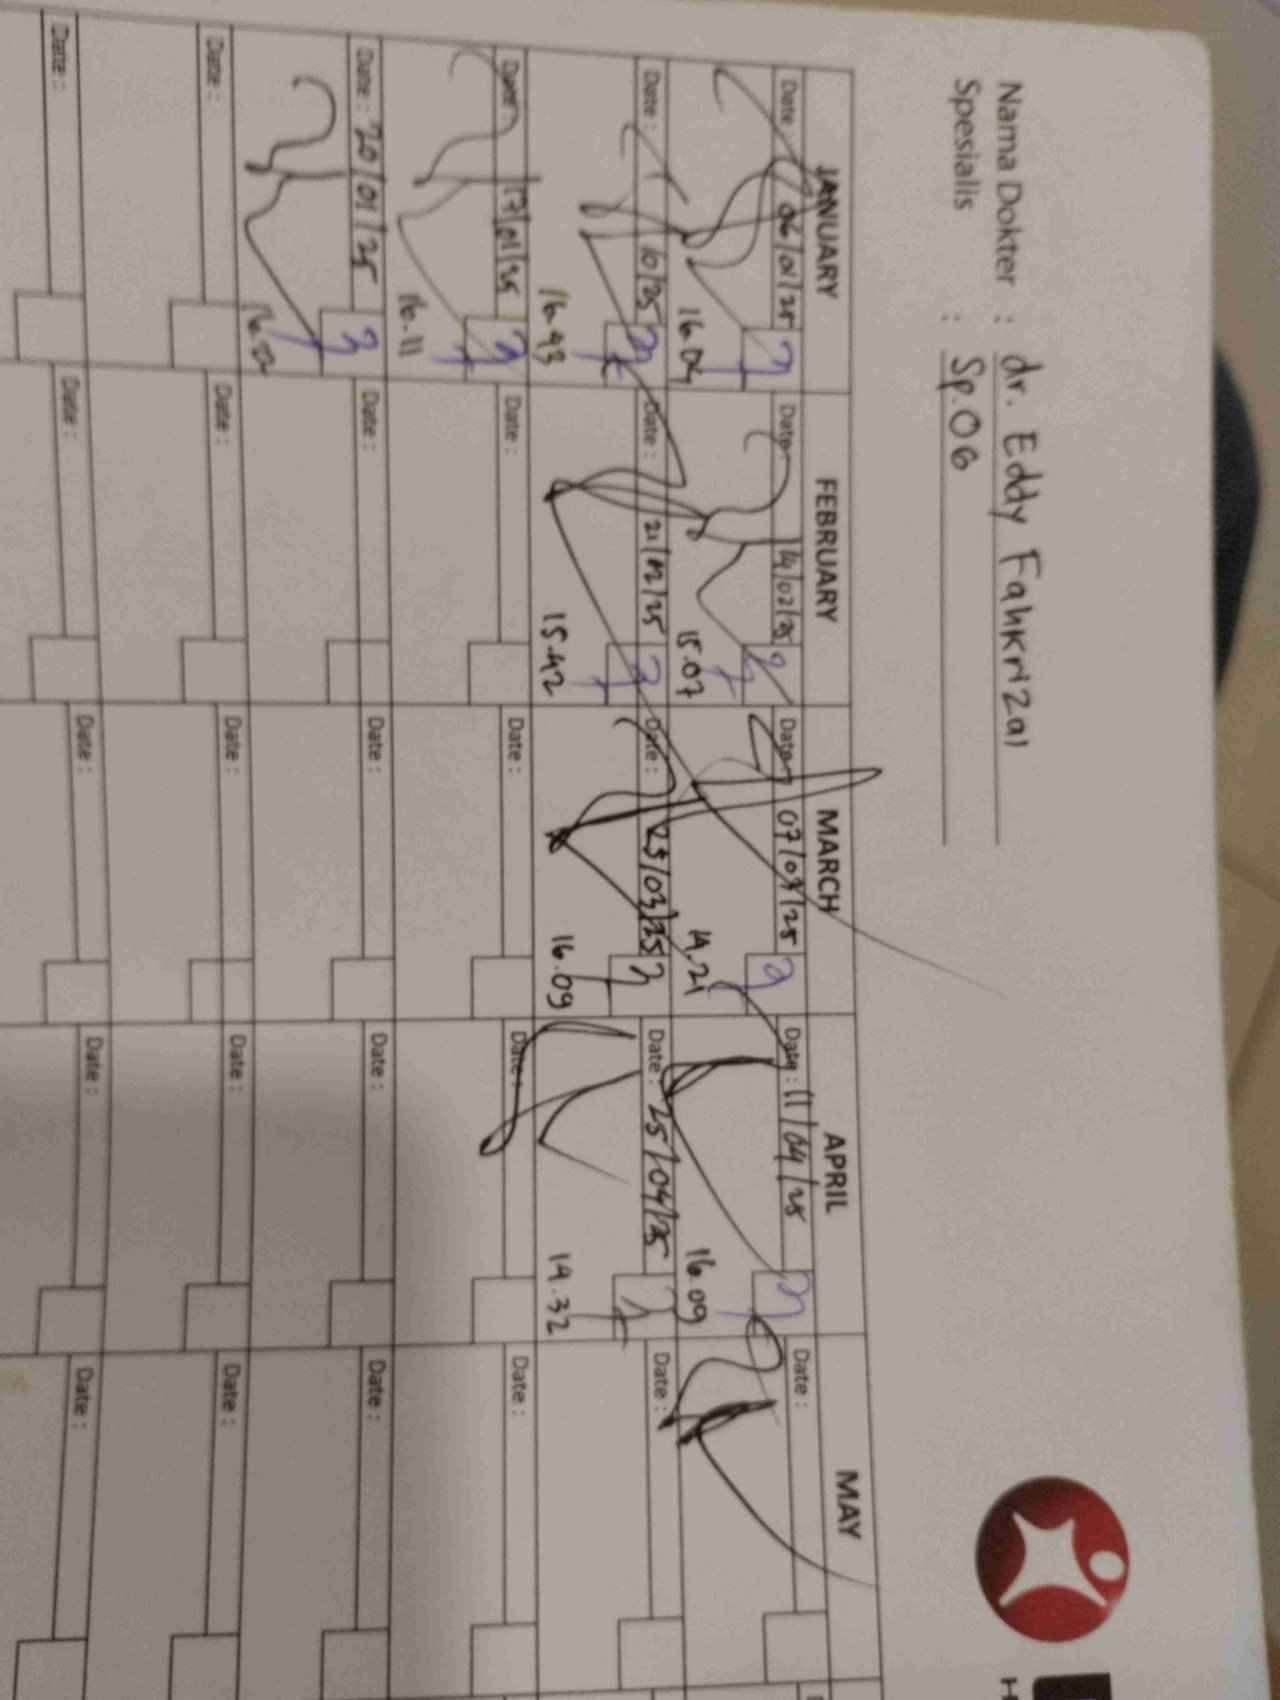 Nama Dokter : dr. Eddy Fahkrizal
Spesialis : Sp.OG
JANUARY FEBRUARY MARCH APRIL MAY
Date : 06/01/25 Date : 14/02/25 Date : 07/03/25 Date : 11/04/25 Date :
16.04 15.07 14.21 16.09
Date : 10/25 Date : 21/02/25 Date : 25/03/25 Date : 25/04/25 Date :
16.43 15.42 16.09 14.32
Date : 17/01/25 Date : Date : Date : Date :
16.11
Date : 20/01/25 Date : Date : Date : Date :
Date : Date : Date : Date : Date :
Date : Date : Date : Date : Date :